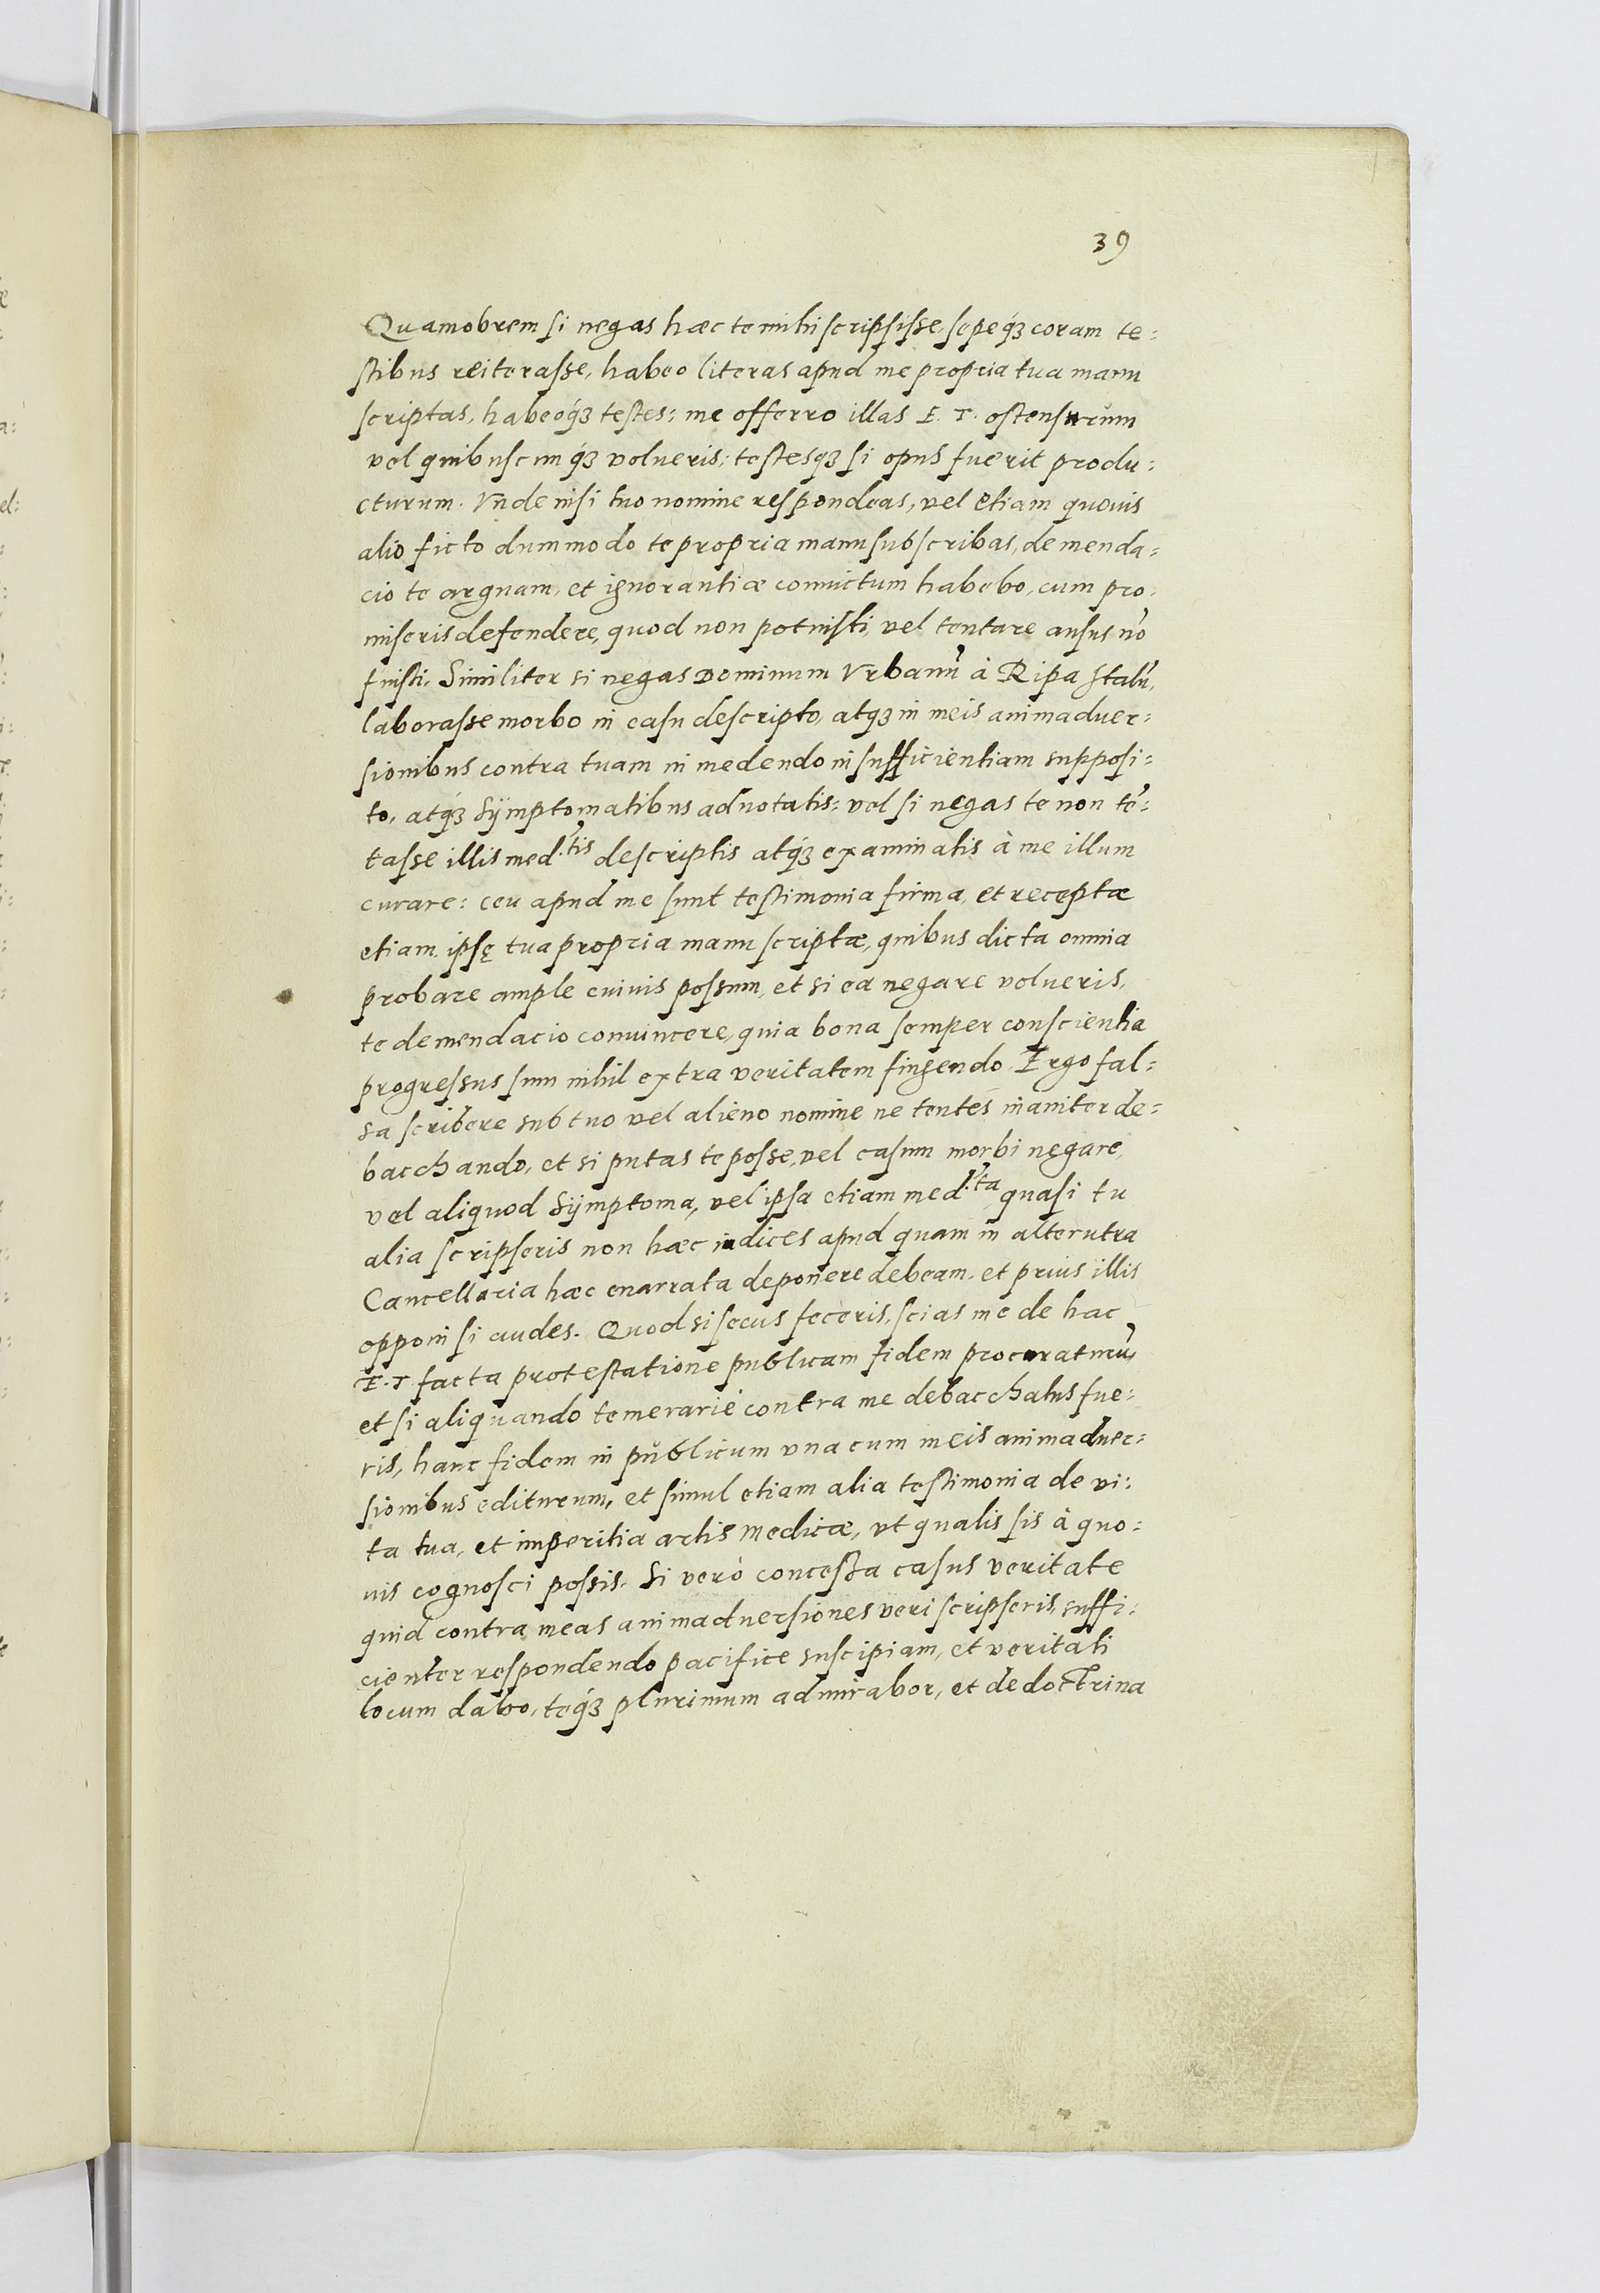 39
Quamobrem si negas hæc te mihi scripsisse, sepeq́ꝫ coram te=
stibus reiterasse, habeo literas apud me propria tua manu
scriptas, habeoq́ꝫ testes: me offerro illas E. T. ostensurum
vel quibuscunq́ꝫ volueris, testesqꝫ si opus fuerit produ=
cturum. Vnde nisi tuo nomine respondeas, vel etiam quouis
alio ficto dummodo te propria manu subscribas, de menda=
cio te arguam, et ignorantiæ conuictum habebo, cum pro=
miseris defendere, quod non potuisti, vel tentare ausus nō
fuisti. Similiter si negas Dominum Vrbanū à Ripa stalū,
laborasse morbo in casu descripto, atqꝫ in meis animaduer=
sionibus contra tuam in medendo insufficientiam supposi=
to, atq́ꝫ Sÿmptomatibus adnotatis: vel si negas te non tē=
tasse illis med.tis descriptis atq́ꝫ examinatis à me illum
curare: ceu apud me sunt testimonia firma, et receptæ
etiam ipsę tua propria manu scriptæ, quibus dicta omnia
probare ample cuiuis possum, et si ea negare volueris,
te de mendacio conuincere, quia bona semper conscientia
progressus sum nihil extra veritatem fingendo. Ergo fal=
sa scribere sub tuo vel alieno nomine ne tentes inaniter de=
bacchando, et si putas te posse, vel casum morbi negare,
vel aliquod Sÿmptoma, vel ipsa etiam med.ta quasi tu
alia scripseris non hæc indices apud quam in alterutra
Cancellaria hæc enarrata deponere debeam, et prius illis
opponi si audes. Quod si secus feceris, scias me de hac
E. T. facta protestatione publicam fidem procuraturū,
et si aliquando temerariè contra me debacchatus fue=
ris, hanc fidem in publicum vna cum meis animaduer=
sionibus editurum, et simul etiam alia testimonia de vi=
ta tua, et imperitia artis medicæ, vt qualis sis à quo=
uis cognosci possis. Si verò concessa casus veritate
quid contra meas animaduersiones veri scripseris, suffi=
cienter respondendo pacifice suscipiam, et veritati
locum dabo, teq́ꝫ plurimum admirabor, et de doctrina